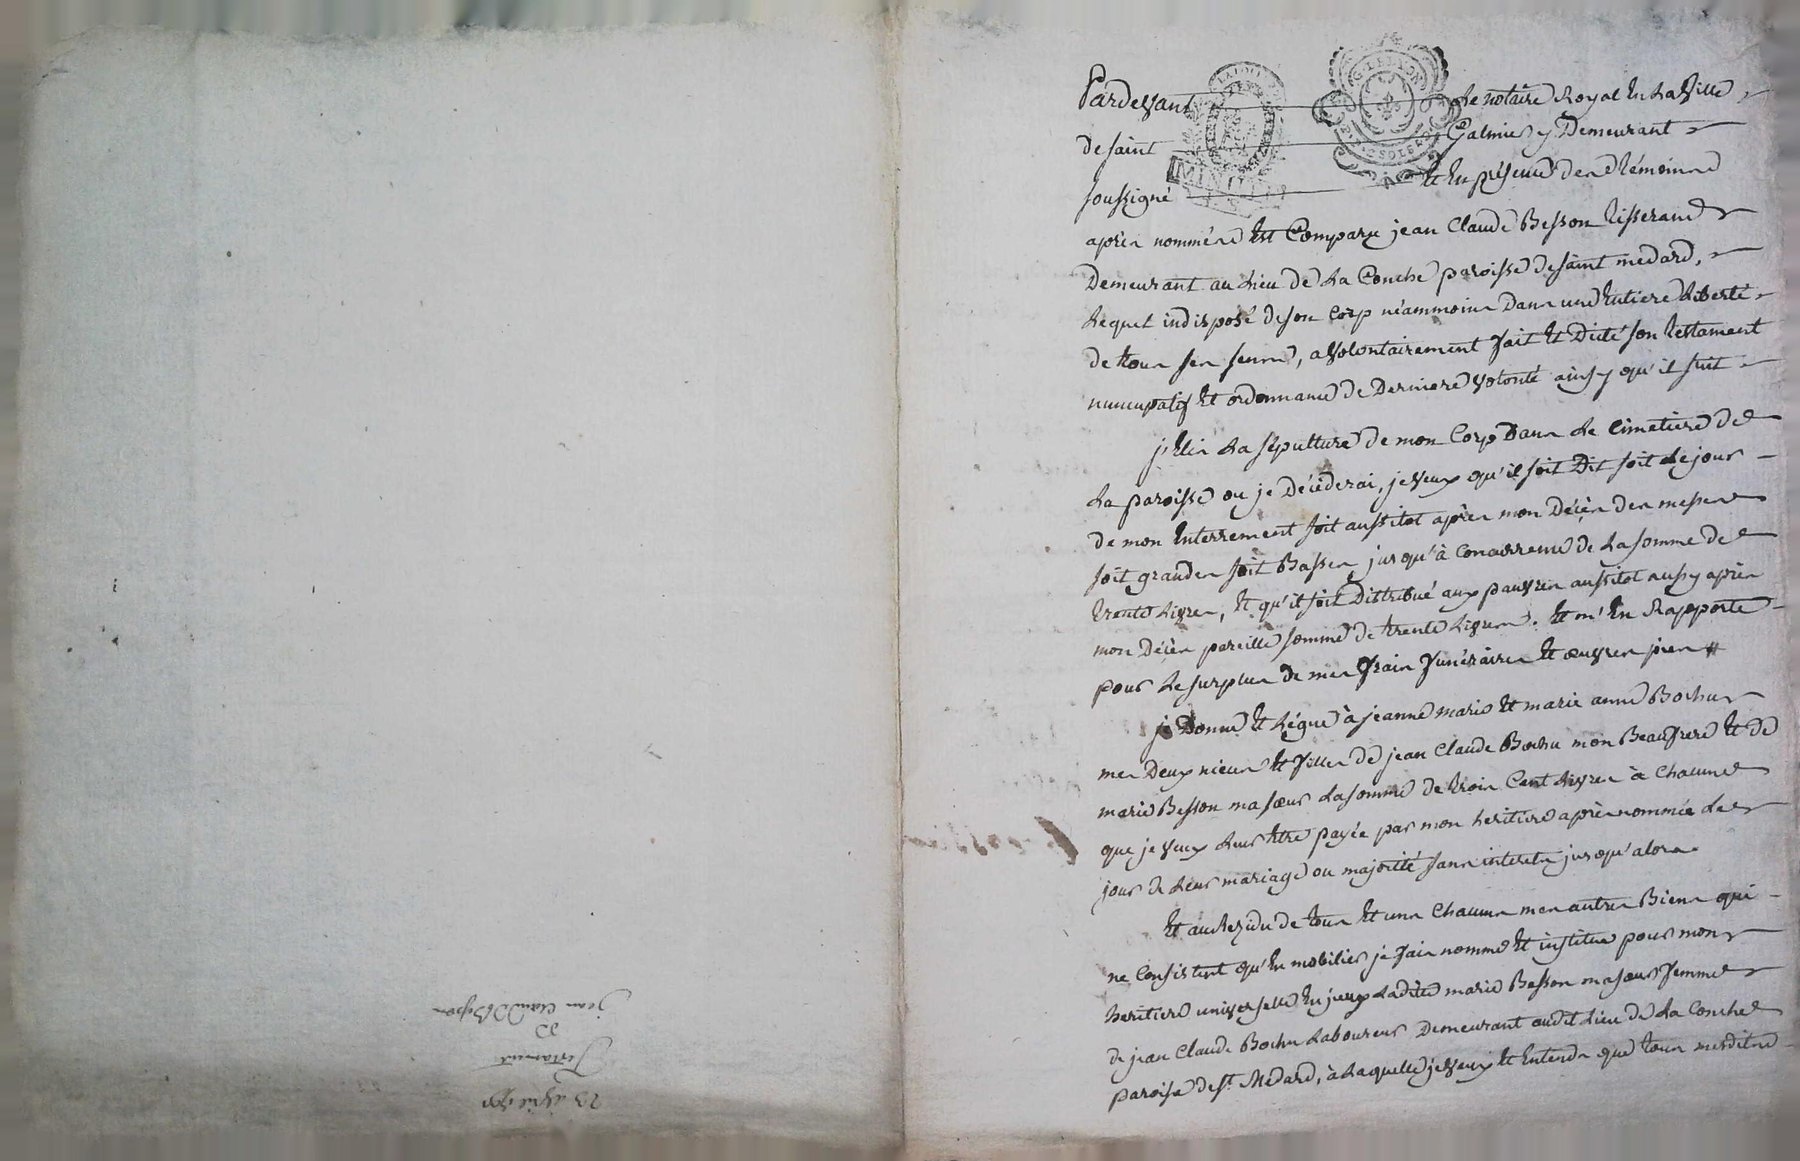 Pardevant Le notaire Royal En La Ville
de saint Galmier y Demeurant
soussigné Et En présence des témoins
après nommés Est Comparu jean Claude Besson tisserand
Demeurant au Lieu de La Conche paroisse de saint medard,
Lequel indisposé de son Corp néammoins Dans une Entiere Liberté
de tous ses sens, a volontairement fait Et Dicté son testament
nuncupatif Et ordonnance de Derniere volonté ainsy qu'il suit
j'Elis La sépulture de mon Corp Dans Le Cimetiere de
La paroisse ou je Décéderai, je veux qu'il soit Dit soit Le jour
de mon Enterrement soit aussitot après mon Décès des messes
soit grandes soit Basses, jusqu'à Concurrence de La somme de
trente Livres, Et qu'il soit Distribué aux pauvres aussitot aussy après
mon Décès pareille somme de trente Livres. Et m'En Rapporte
pour Le surplus de mes frais funéraires Et œuvres pies
je Donne Et Légue à jeanne marie Et marie anne Bochu
mes Deux nieces Et filles de jean Claude Bochu mon Beaufrere Et de
marie Besson ma sœur La somme de trois Cent Livres à Chacune
que je veux Leur Etre payée par mon heritiere après nommée Le
jour de Leur mariage ou majorité sans interets jusqu'alors
Et au Rezidu de tous Et uns Chacuns mes autres Biens qui
ne Consistent qu'En mobilier je fais nomme Et institue pour mon
heritiere universelle Ladite marie Besson ma sœur femme
de jean Claude Bochu Laboureur Demeurant audit Lieu de La Conche
paroisse de st. Médard, à Laquelle je veux Et Entends que tous mesdits
23 avril
Testament
de
jean Claude Besson